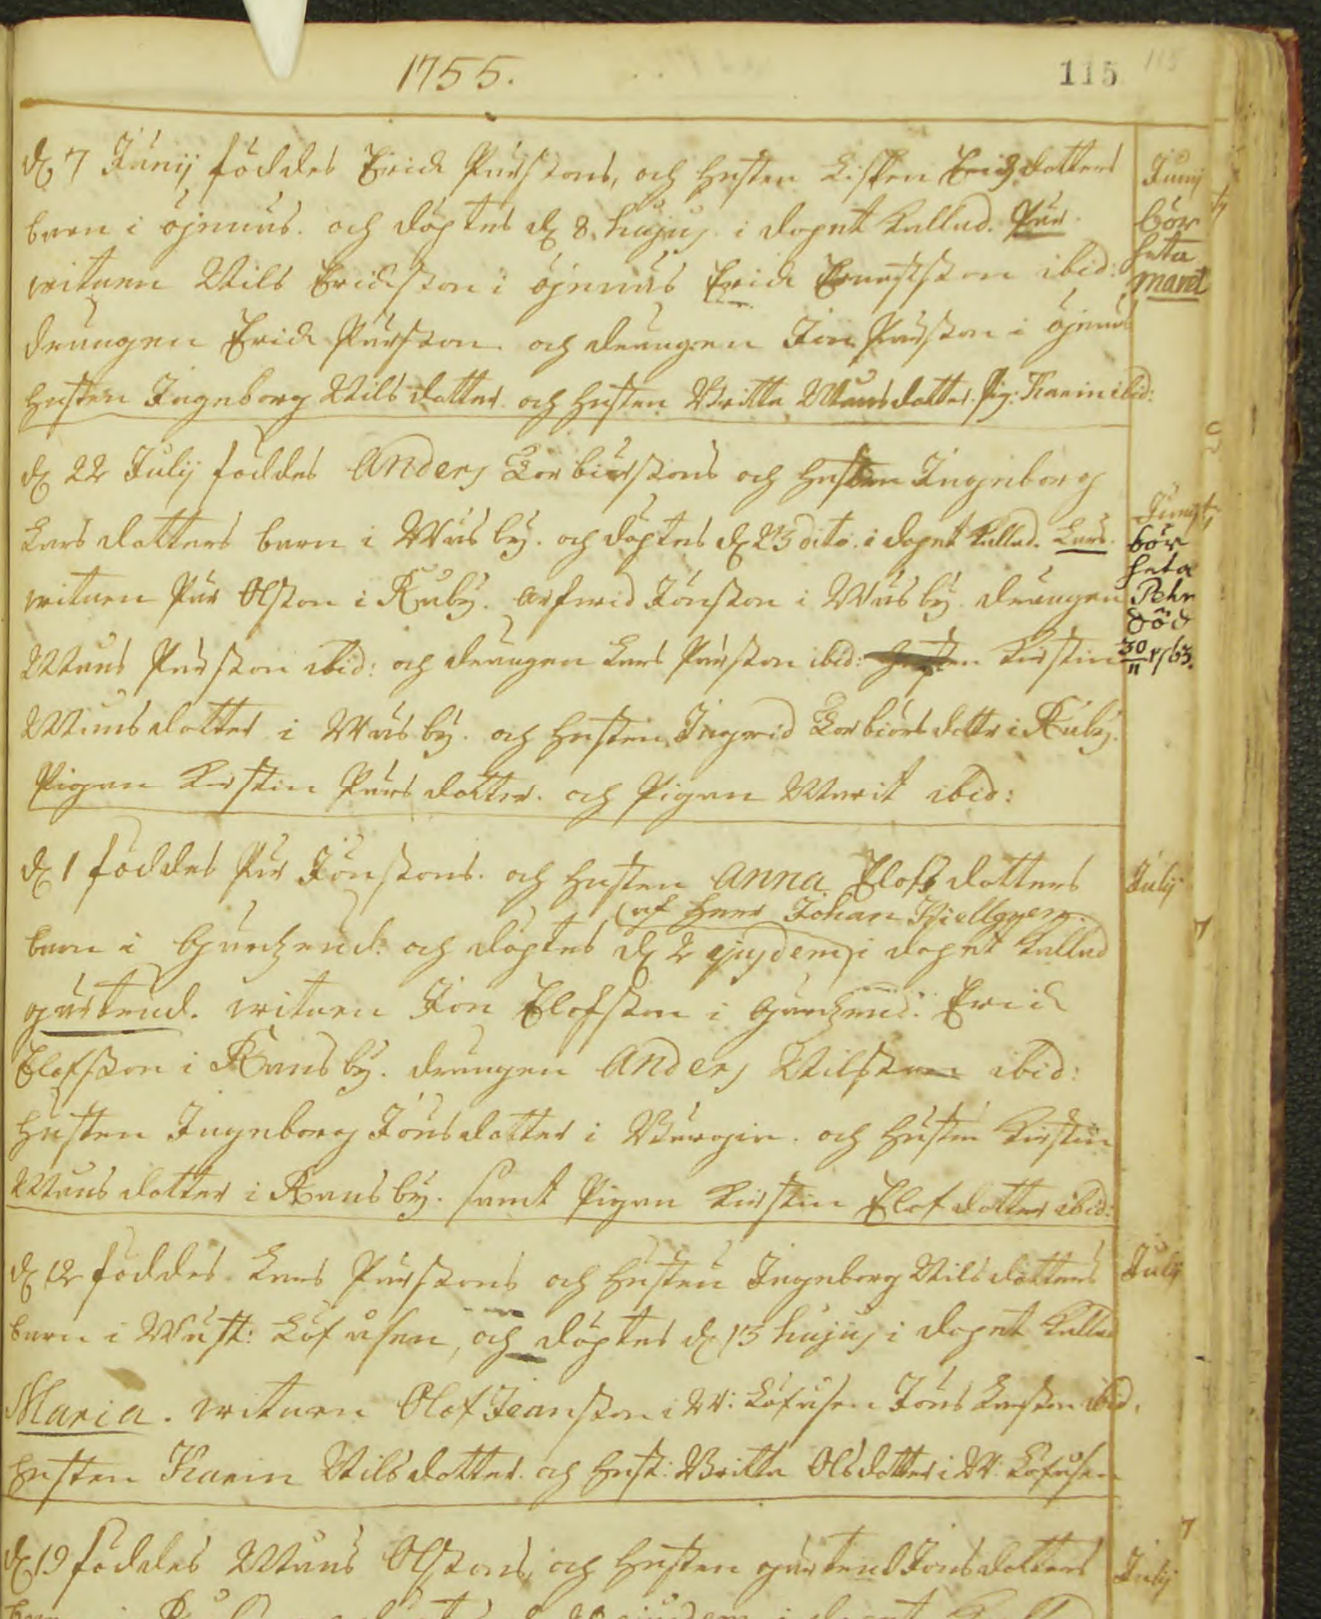 1755.
115
d. 7 Junij föddes Erich Pärssons, och Hustru Lisken Erichsdotters
barn i öjenäs. och döptes d. 8. hujus i dopet Kallad. Pär.
witnen Nils Ericksson i öjenäs Erich ibid:
drängen Erich Pärsson och drängen Jon Pärsson i öjenäs
hustrun Ingeborg Nilsdotter. och hustrun Britta Månsdotter. Pig: Karin ibid:
Junij
bör
heta
marit
d. 22 Julij föddes Anders Torbiörssons och hustrun Ingeborg
Larsdotters barn i Wåsby. och döptes d. 23 dito. i dopet Kallad. Lars.
witnen Pär Olsson i Råby. Arfwid Jönsson i Wåsby. drängen
Måns Pärsson ibid: och drängen Lars Pärsson ibid: Kirstin
Månsdotter i Wåsby. och hustrun Ingrid Torbiörsdottr i Råby.
Pigan Kirstin Pärsdotter. och Pigan Marit ibid:
bör
heta
Pehr
död
30/11 1763.
d. 1 föddes Pär Jönssons. och hustrun Anna Elofsdotters
(af Herr Johan
barn i och döptes d. 2 ejusdem) i dopet Kallad
gärtrud. witnen Jon Elofsson i Erich
Elofsson i Ransby. drängen Anders Nilsson ibid:
hustrun Ingeborg Jönsdotter i och hustrun Kirstin
Månsdotter i Ransby. samt Pigan Kirstin Elofsdotter ibid:
Julij
d. 12 föddes Lars Pärssons och hustrun Ingeborg Nilsdotters
barn i Wäst: Löfåsen, och döptes d. 13 hujus i dopet Kallad
Maria. witnen Olof Jeansson i W: Löfåsen Jöns Larsson ibid.
hustrun Karin Nilsdotter. och hust: Britta Olsdotter i W: Löfåsen
Julij
d. 19 föddes Måns Olssons, och hustrun gärtrud Jonsdotters
Julij